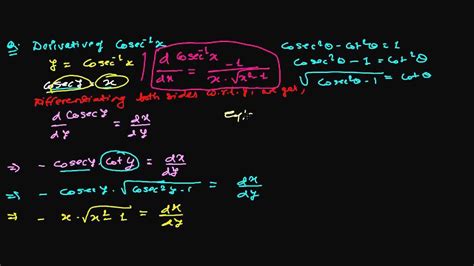 Q. Derivative of Cosec⁻¹x
y = Cosec⁻¹x
Cosec y = x
d Cosec⁻¹x / dx = -1 / x·√x²-1
Cosec²θ - Cot²θ = 1
Cosec²θ - 1 = Cot²θ
√Cosec²θ - 1 = Cot θ
Differentiating both sides w.r.t y, we get,
d Cosec y / dy = dx / dy
⇒ - Cosec y · Cot y = dx / dy
⇒ - Cosec y · √Cosec²y - 1 = dx / dy
⇒ - x · √x² - 1 = dx / dy